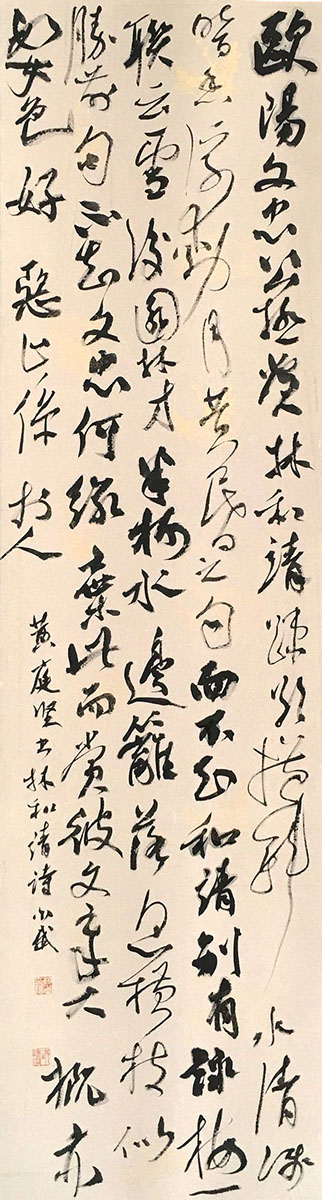 歐陽文忠公極賞林和靖疎影橫斜水清淺
暗香浮動月黃昬之句而不知和靖別有詠梅一
聯云雪後園林才半樹水邊籬落忽橫枝似
勝前句不知文忠何緣棄此而賞彼文章大概亦
如女色好惡止係於人
黄庭坚书林和靖詩